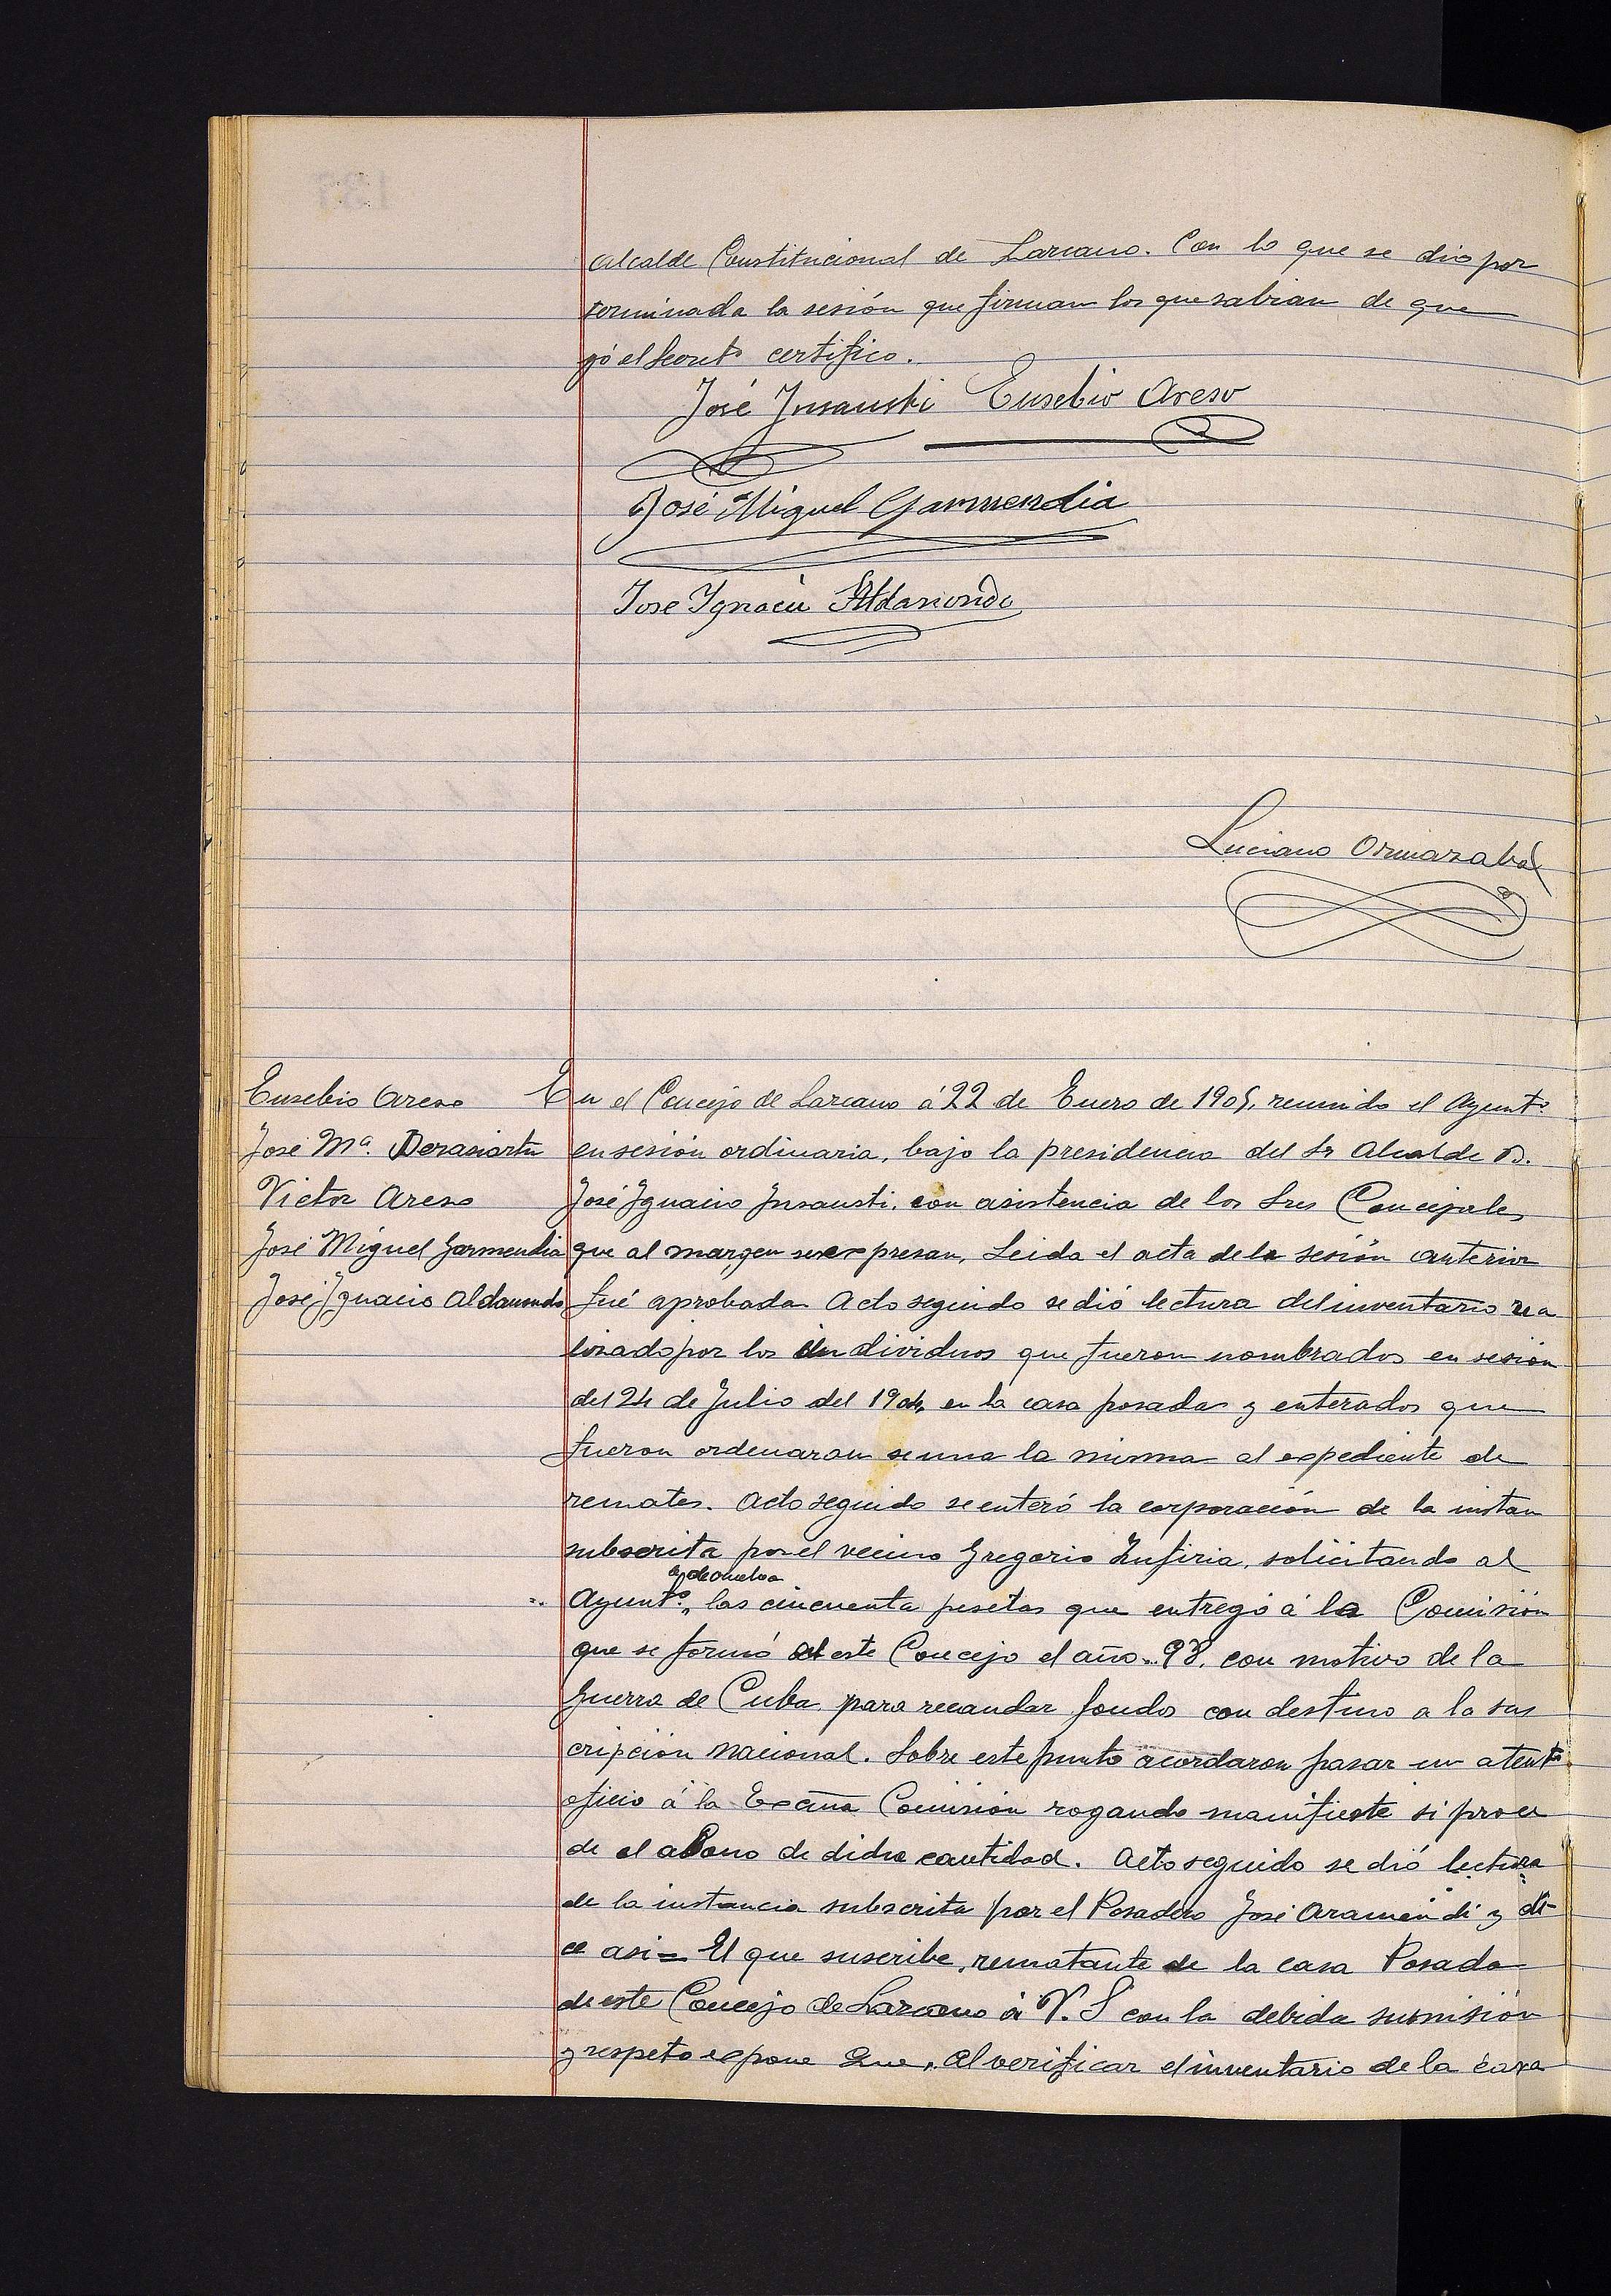 Alcalde Constitucional de Larcano. Con lo que se dio por
terminada la sesión que firman los que sabian de que
yó el Secret.º certifico.
José Insausti Eusebio Areso
José Miguel Garmendia
Jose Ignacio Aldanondo
Luciano Ormazabal
Eusebio Areso
José Mª. Derasiartu
Victor Areso
José Miguel Garmendia
José Ignacio Aldanondo
En el Concejo de Larcano á 22 de Enero de 1905, reunido el Ayunt.º
en sesión ordinaria, bajo la presidencia del Sr Alcalde D.
José Ignacio Insausti, con asistencia de los Sres Concejales
que al margen se expresan, Leida el acta de la sesión anterior
fué aprobada Acto seguido se dió lectura del inventario rea
lizado por los individuos que fueron nombrados en sesión
del 24 de Julio del 1904, en la casa posada y enterados que
fueron ordenaron se una la misma al expediente de
remates. Acto seguido se enteró la corporación de la instan
subscrita por el vecino Gregorio Zufiria, solicitando al
Ayunt.º, devuelva las cincuenta pesetas que entregó á la Comisión
que se formó en este Concejo el año 98, con motivo de la
Guerra de Cuba para recaudar fondos con destino a la sus
cripción nacional. Sobre este punto acordaron pasar un atento
oficio á la Excma Comisión rogando manifieste si proce
de el abono de dicha cantidad. Acto seguido se dió lectura
de la instancia subscrita por el Posadero José Aramendi y di-
ce asi= El que suscribe, rematante de la casa Posada
de este Concejo de Larcano á V. S con la debida sumisión
y respeto expone Que, Al verificar el inventario de la casa